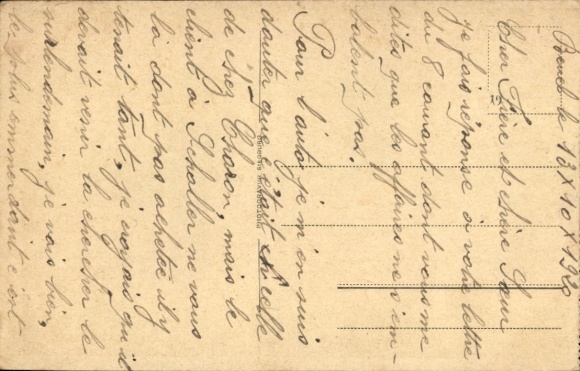 le 13 X 10 X 1920
Cher Frère et chère Sœur
je fais réponse à votre lettre
du 8 courant dont vous me
dites que les affaires ne s'em-
balent pas.
Pour l'auto je m'en suis
douter que c'était celle
de chez Charon, mais le
client à Scholler ne vous
la dont pas acheter il y
tenait tant, je croyais qu'il
devait venir la chercher le
surlendemain, je vois bien,
le plus emmerdant c'est